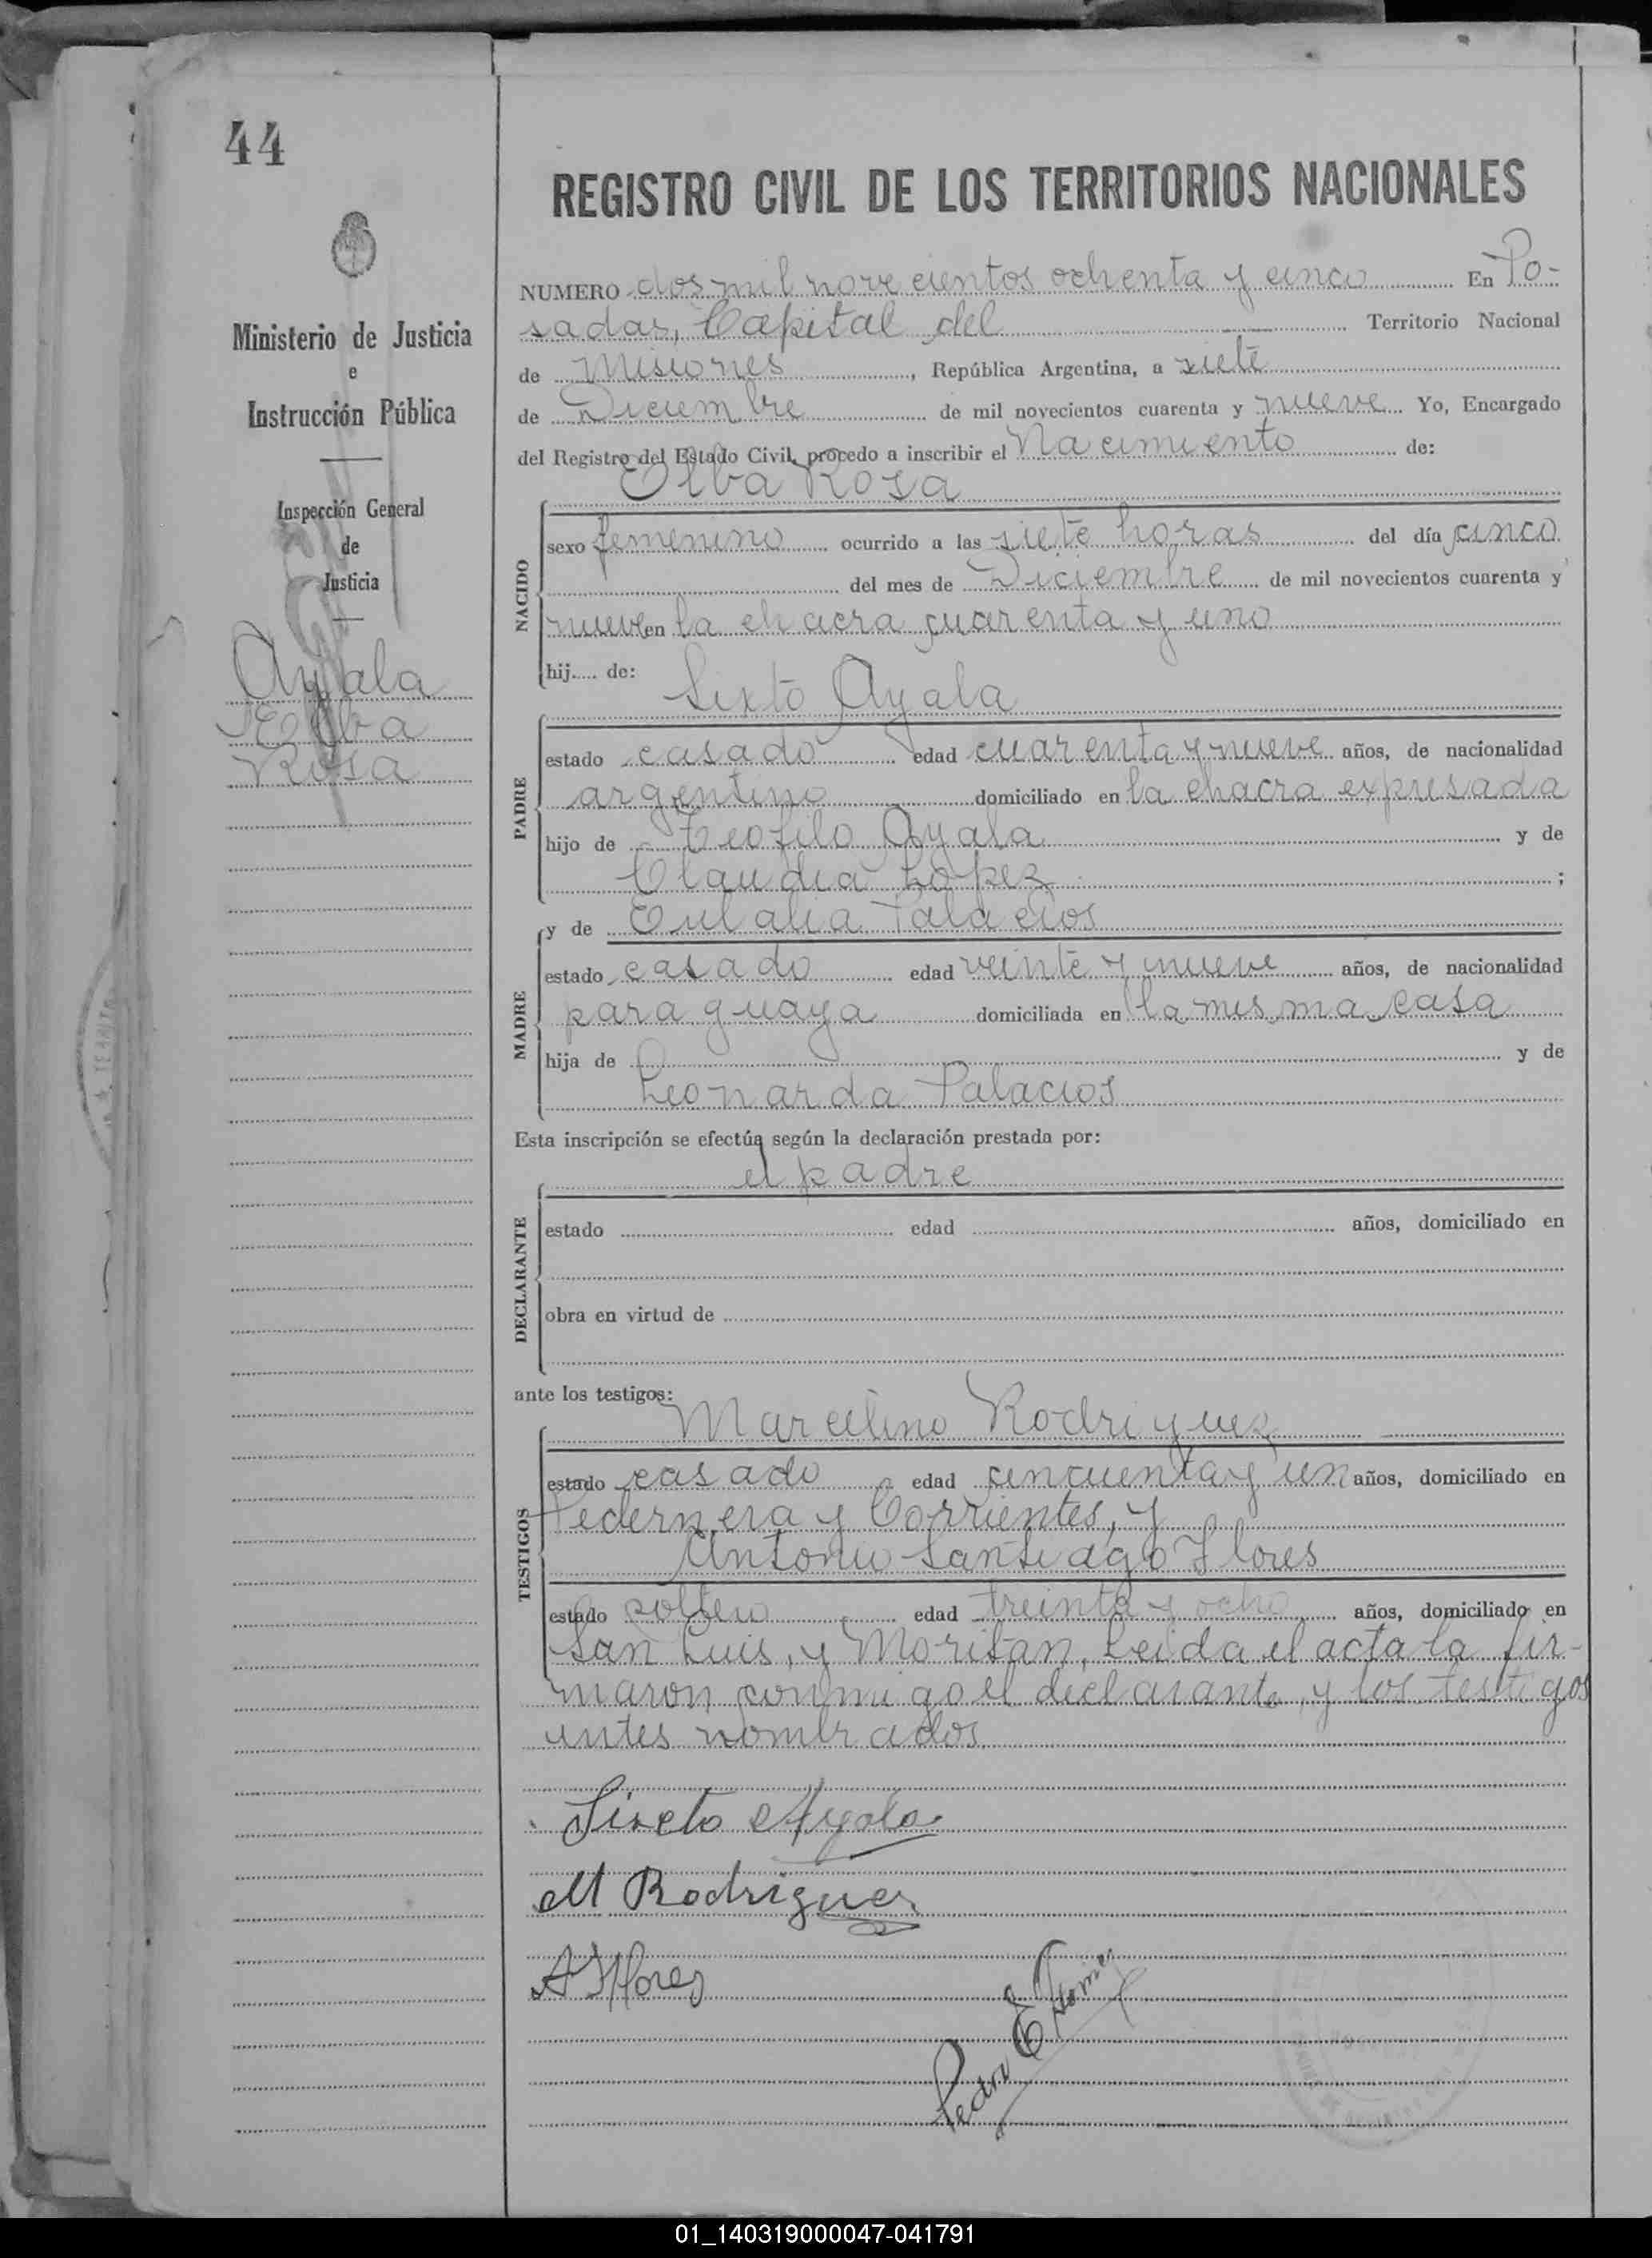 44
Ministerio de Justicia
e
Instrucción Pública
Inspección General
de
Justicia
Ayala
Elba
Rosa
REGISTRO CIVIL DE LOS TERRITORIOS NACIONALES
NUMERO dos mil novecientos ochenta y cinco En Po-
sadas, Capital del Territorio Nacional
de Misiones, República Argentina, a siete
de Diciembre de mil novecientos cuarenta y nueve Yo, Encargado
del Registro del Estado Civil, procedo a inscribir el Nacimiento de:
Elba Rosa
NACIDO
sexo femenino ocurrido a las siete horas del día cinco
del mes de Diciembre de mil novecientos cuarenta y
nueve en la chacra cuarenta y uno
hij..... de:
Sixto Ayala
PADRE
estado casado edad cuarenta y nueve años, de nacionalidad
argentino domiciliado en la chacra expresada
hijo de Teofilo Ayala y de
Claudia Lopez ;
y de Eulalia Palacios
MADRE
estado casado edad veinte y nueve años, de nacionalidad
paraguaya domiciliada en la misma casa
hija de y de
Leonarda Palacios
Esta inscripción se efectúa según la declaración prestada por:
el padre
DECLARANTE
estado edad años, domiciliado en
obra en virtud de
ante los testigos:
Marcelino Rodriguez
TESTIGOS
estado casado edad cincuenta y un años, domiciliado en
Pedernera y Corrientes, y
Antonio Santiago Flores
estado soltero edad treinta y ocho años, domiciliado en
San Luis, y Moritan, Leida el acta la fir-
maron conmigo el declarante y los testigos
antes nombrados
Sixto Ayala
M Rodriguez
A S Flores
Pedro E
01_140319000047-041791